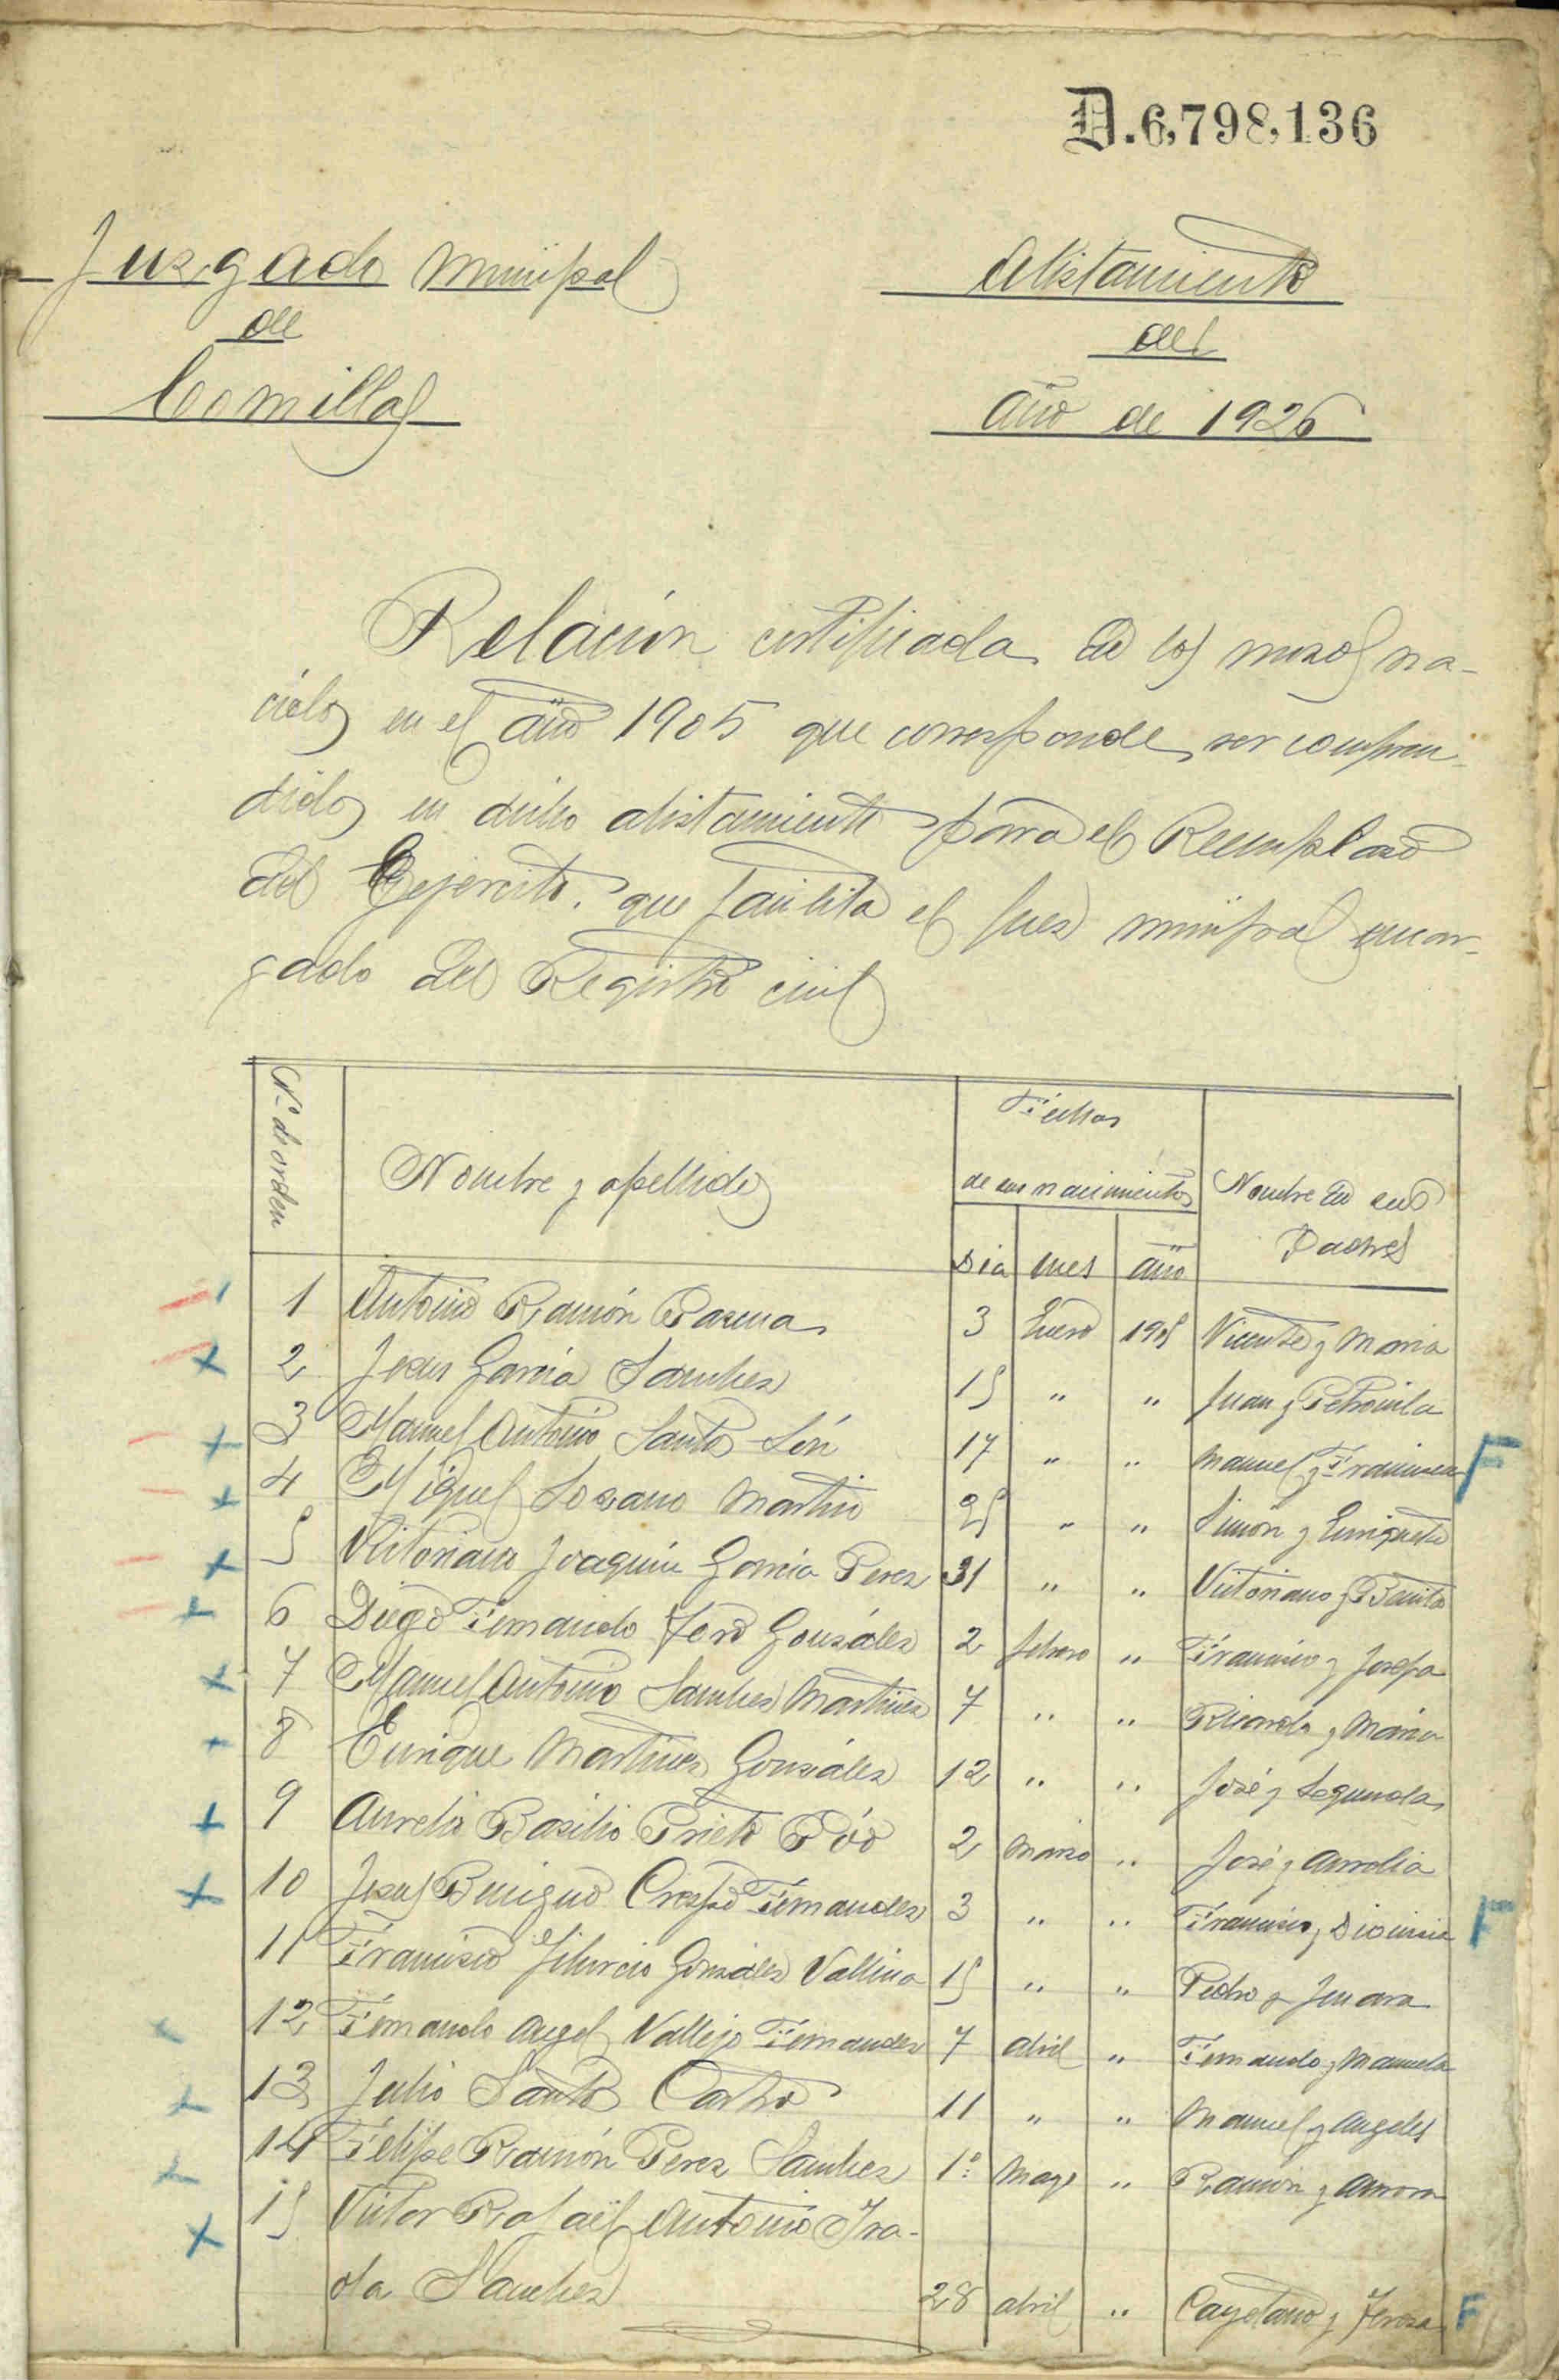 D.6,798,136
Juzgado Municipal
de
Comillas
Alistamiento
del
año de 1926
Relación certificada de los mozos na-
cidos en el año 1905 que corresponde ser compren-
didos en dicho alistamiento para el Reemplazo
del Ejercito, que facilita el Juez municipal encar-
gado del Registro civil
Nº de orden
Nombre y apellidos
Fechas
de sus nacimientos
Dia mes año
Nombre de sus
Padres
1 Antonio Ramón 3 Enero 1905 Vicente y Maria
2 Jesus Garcia Sanchez 15 " " Juan y Petronila
3 Manuel Antonio Santos 17 " " Manuel y Francisca F
4 Miguel Lozano Martin 25 " " Simón y Enriqueta
5 Victoriano Joaquin Garcia Perez 31 " " Victoriano y Benita
6 Diego Fernando González 2 febrero " Francisco y Josefa
7 Manuel Antonio Sanchez Martinez 7 " " Ricardo y Maria
8 Enrique Martinez González 12 " " José y Segunda
9 Aurelio Basilio Prieto 2 Marzo " José y Aurelia
10 Jesus Benigno Crespo Fernandez 3 " " Francisco y Dionisia F
11 Francisco González Vallina 15 " " Pedro y Jenara
12 Fernando Angel Vallejo Fernandez 7 abril " Fernando y Manuela
13 Julio Santos Castro 11 " " Manuel y Angeles
14 Felipe Ramón Perez Sanchez 1º Mayo " Ramón y Aurora
15 Victor Rafael Antonio
Sanchez 28 abril " Cayetano y Teresa F